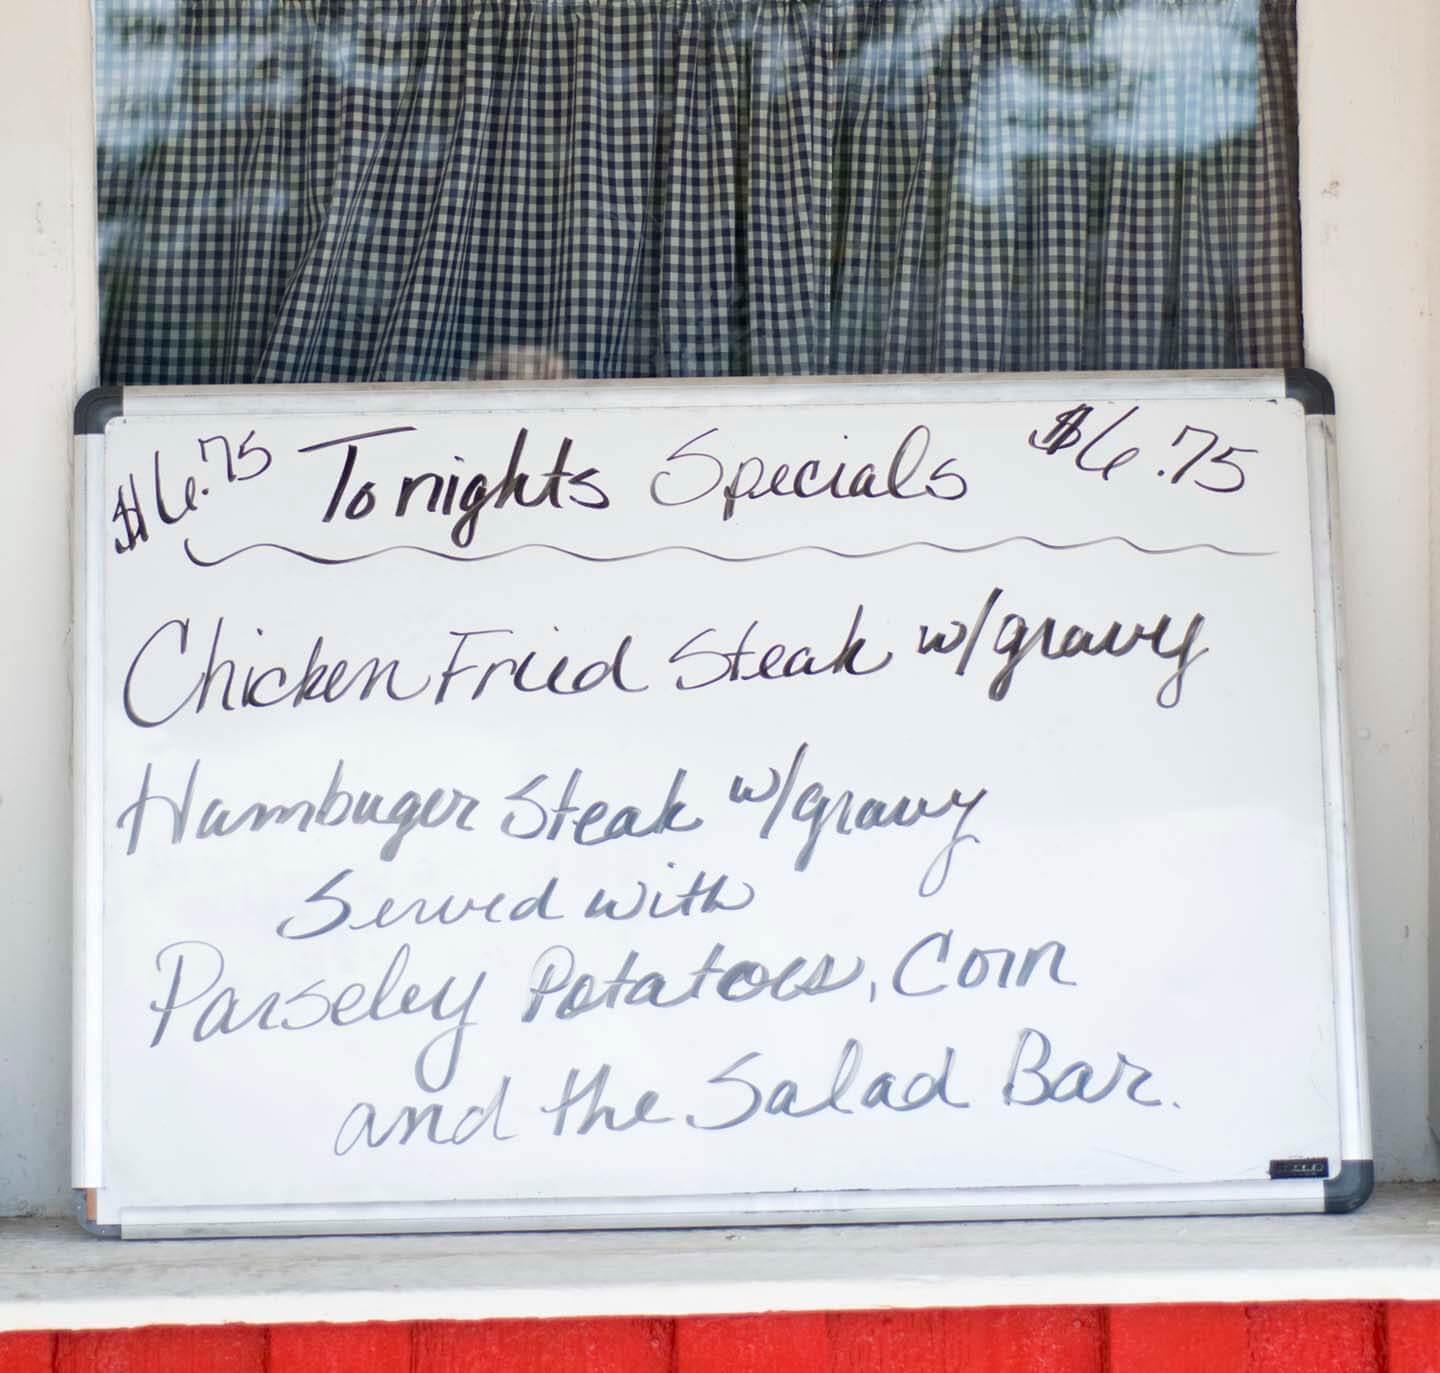 $6.75 Tonights Specials $6.75
Chicken Fried Steak w/gravy
Hambuger Steak w/gravy
Served with
Parseley Potatoes, Corn
and the Salad Bar.